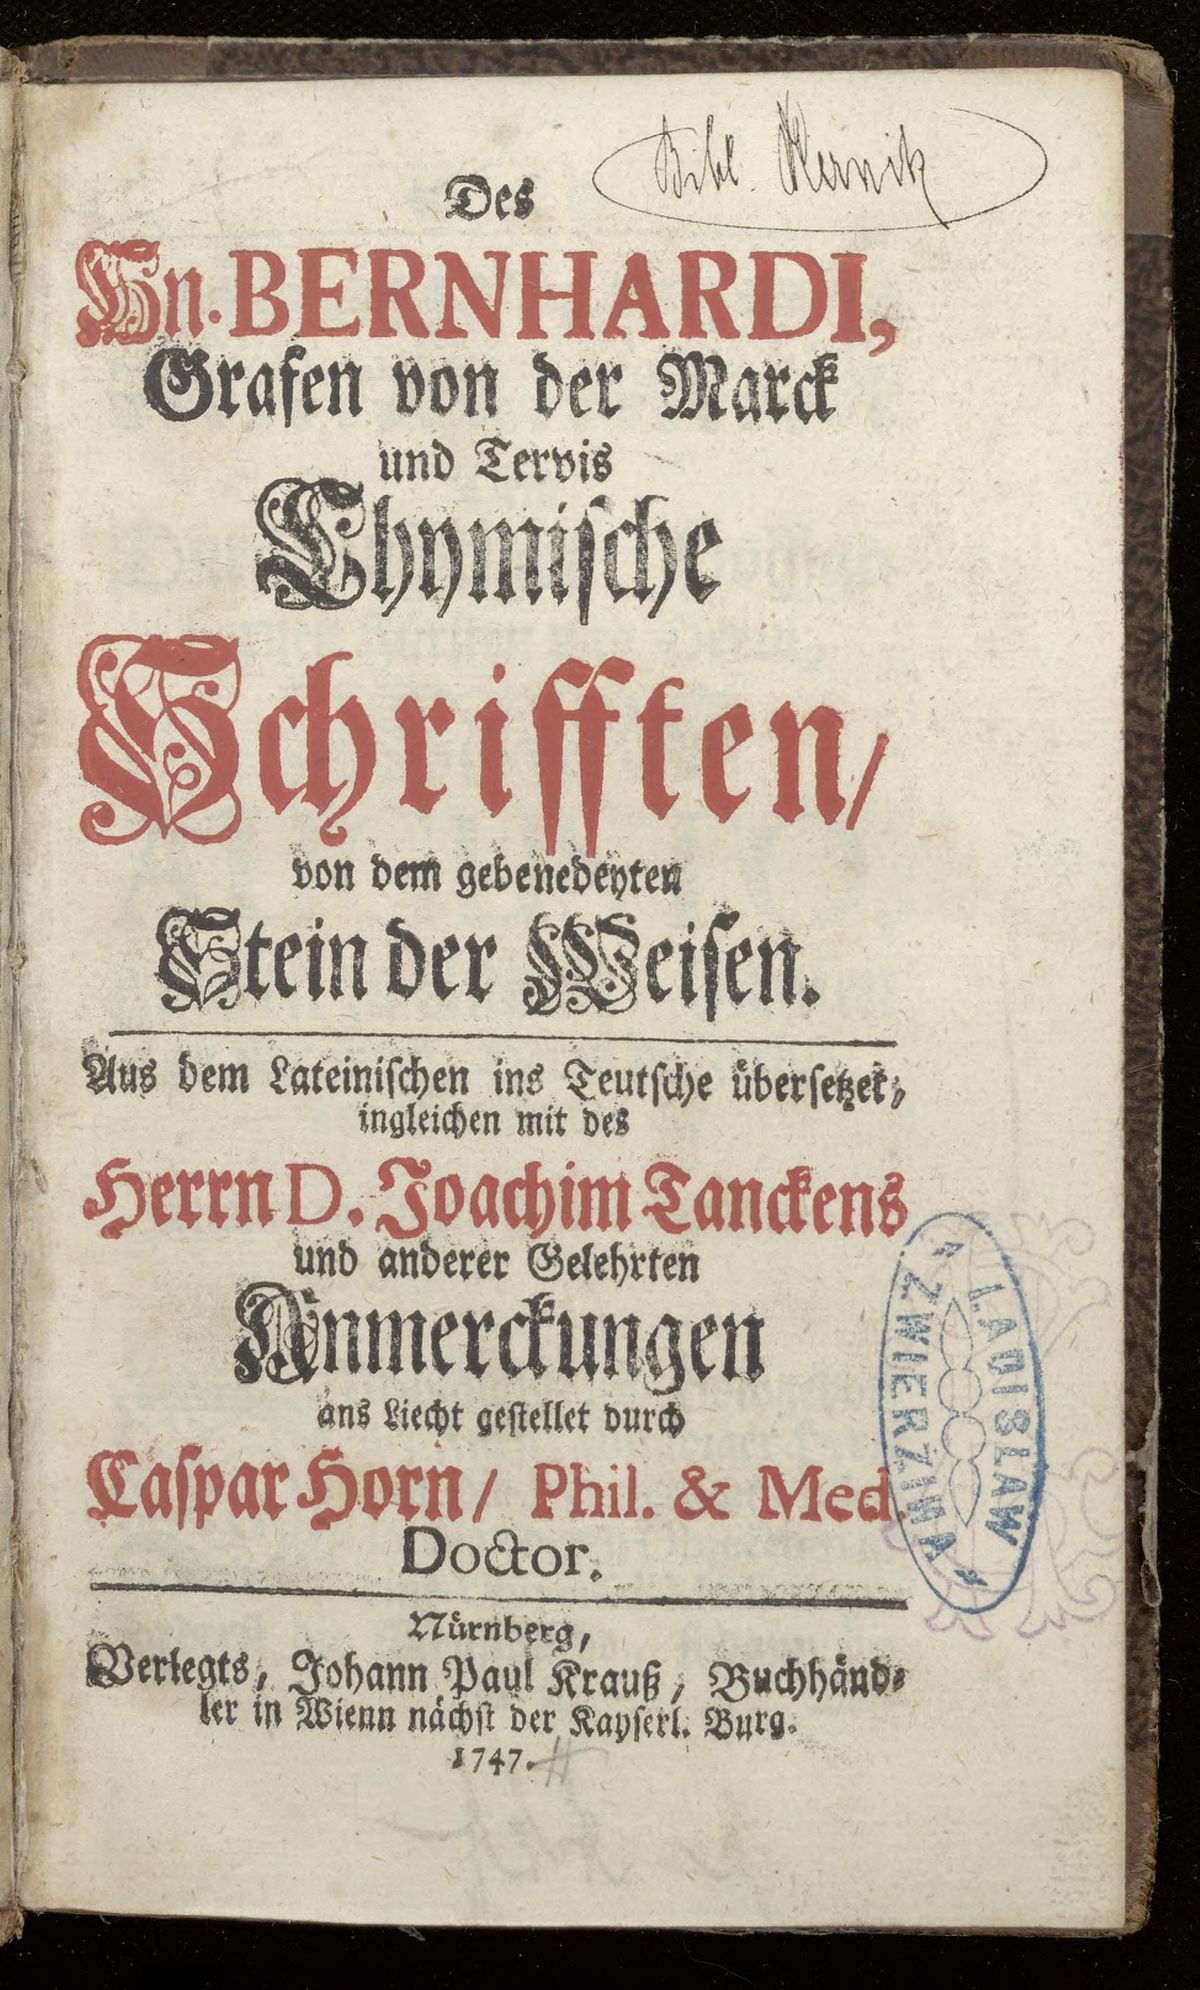 Bibl.
Des
Hn. BERNHARDI,
Grafen von der Marck
und Tervis
Chymische
Schrifften/
von dem gebenedeyten
Stein der Weisen.
Aus dem Lateinischen ins Teutsche übersetzet,
ingleichen mit des
Herrn D. Joachim Tanckens
und anderer Gelehrten
Anmerckungen
ans Liecht gestellet durch
Caspar Horn/ Phil. & Med.
Doctor.
LADISLAW
ZWIERZINA
Nürnberg,
Verlegts, Johann Paul Krauß, Buchhänd-
ler in Wienn nächst der Kayserl. Burg.
1747.